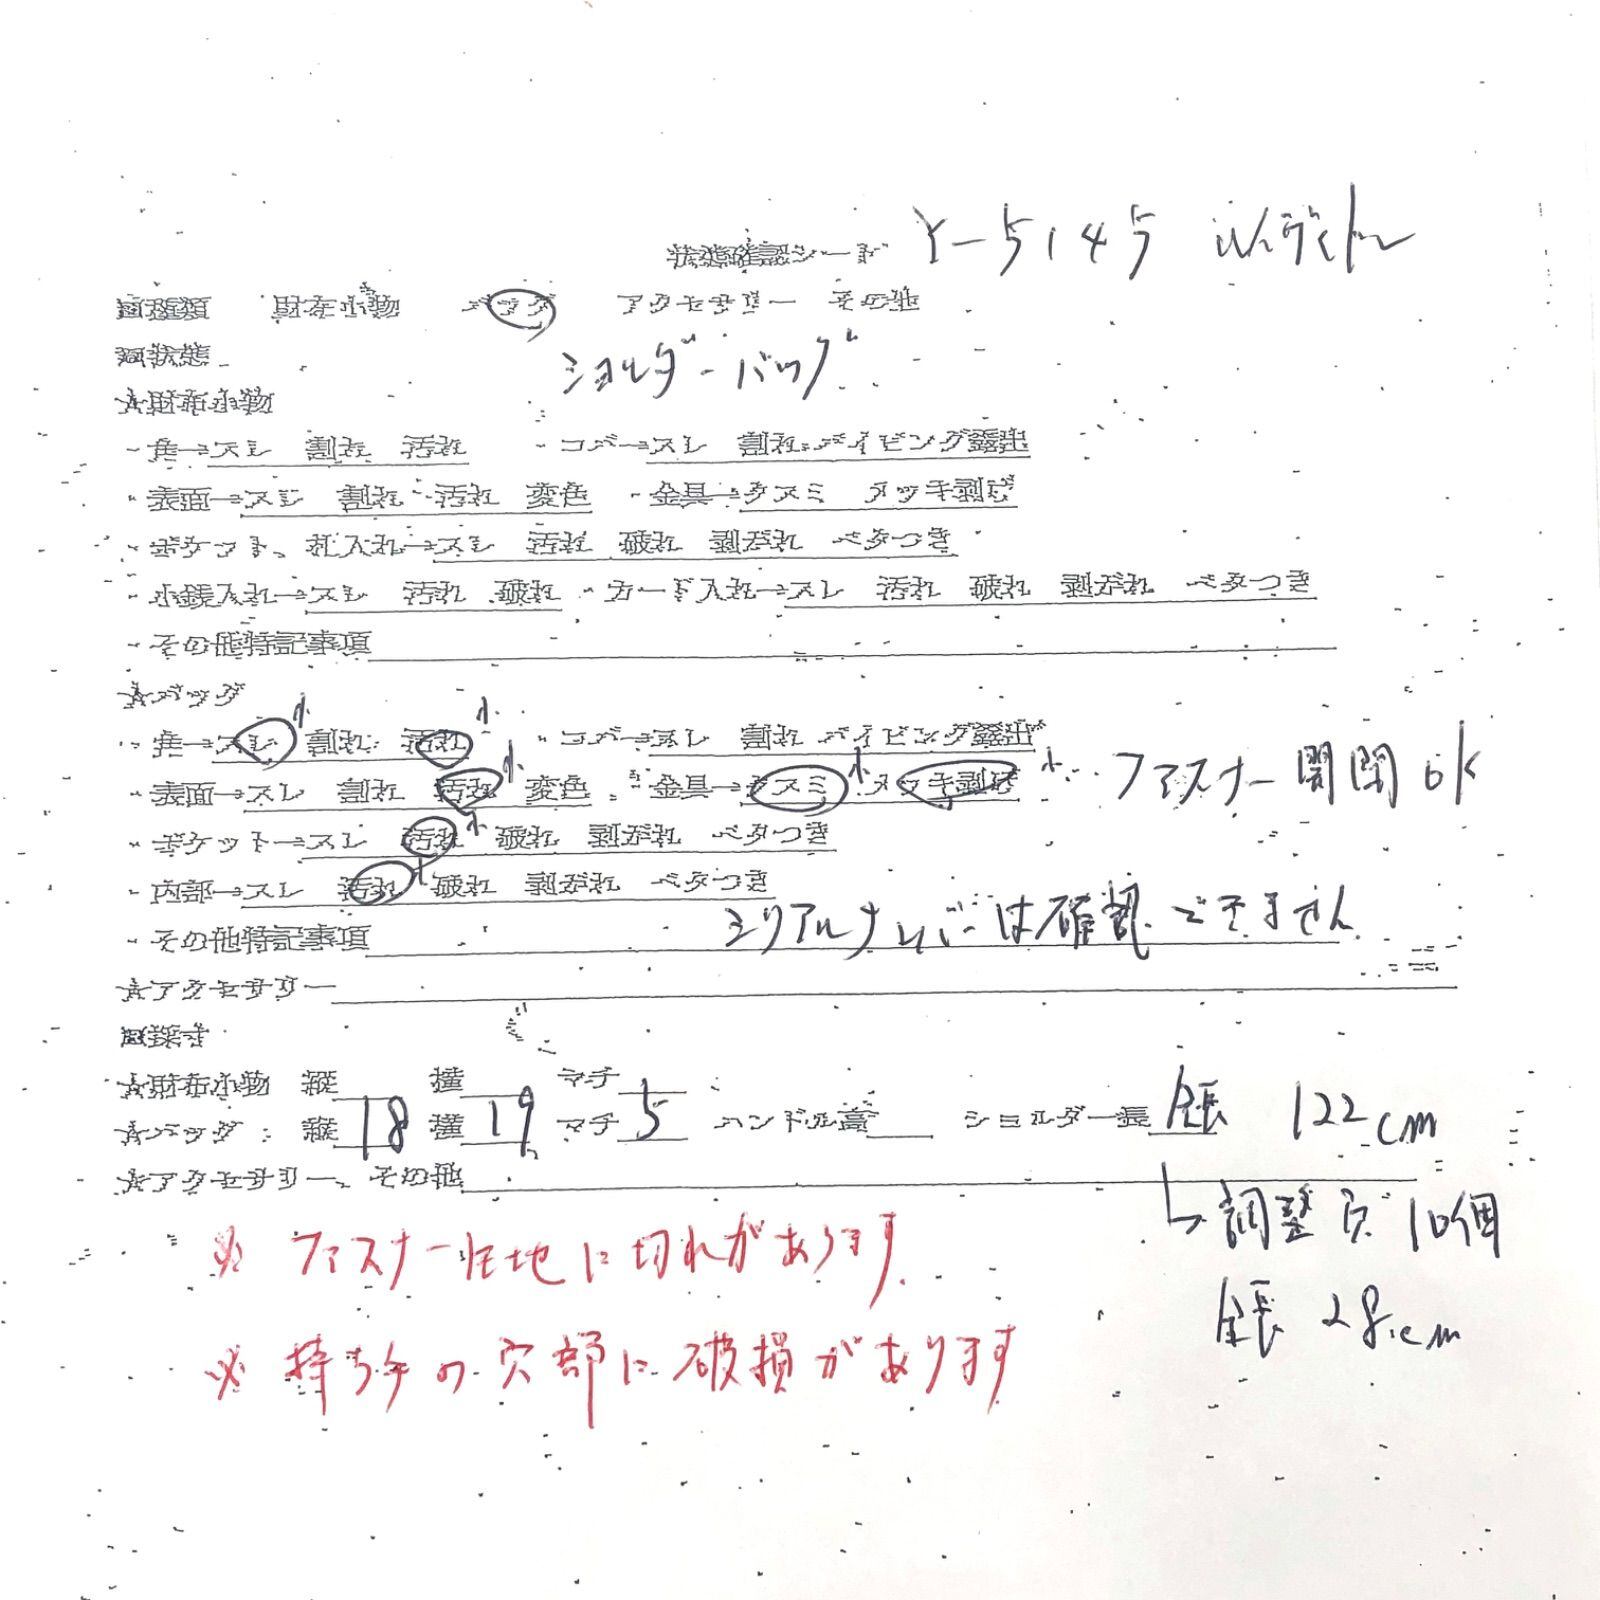 状態確認シート Y-5145
■種類 財布小物 バッグ アクセサリー その他
■状態 ショルダーバッグ
★財布小物
・角→スレ 割れ 汚れ ・コバ→スレ 割れ パイピング露出
・表面→スレ 割れ 汚れ 変色 ・金具→クスミ メッキ剥げ
・ポケット、札入れ→スレ 汚れ 破れ 剥がれ ベタつき
・小銭入れ→スレ 汚れ 破れ ・カード入れ→スレ 汚れ 破れ 剥がれ ベタつき
・その他特記事項
★バッグ
・角→スレ小 割れ 汚れ小 ・コバ→スレ 割れ パイピング露出
・表面→スレ 割れ 汚れ小 変色 ・金具→クスミ小 メッキ剥げ小 ファスナー開閉OK
・ポケット→スレ 汚れ小 破れ 剥がれ ベタつき
・内部→スレ 汚れ小 破れ 剥がれ ベタつき
・その他特記事項 シリアルナンバーは確認できません
★アクセサリー
■採寸
★財布小物 縦 横 マチ
★バッグ 縦 18 横 19 マチ 5 ハンドル高 ショルダー長 全長 122cm
★アクセサリー、その他
↳調整穴 10個
全長 28cm
※ ファスナー生地に切れがあります
※ 持ち手の穴部に破損があります